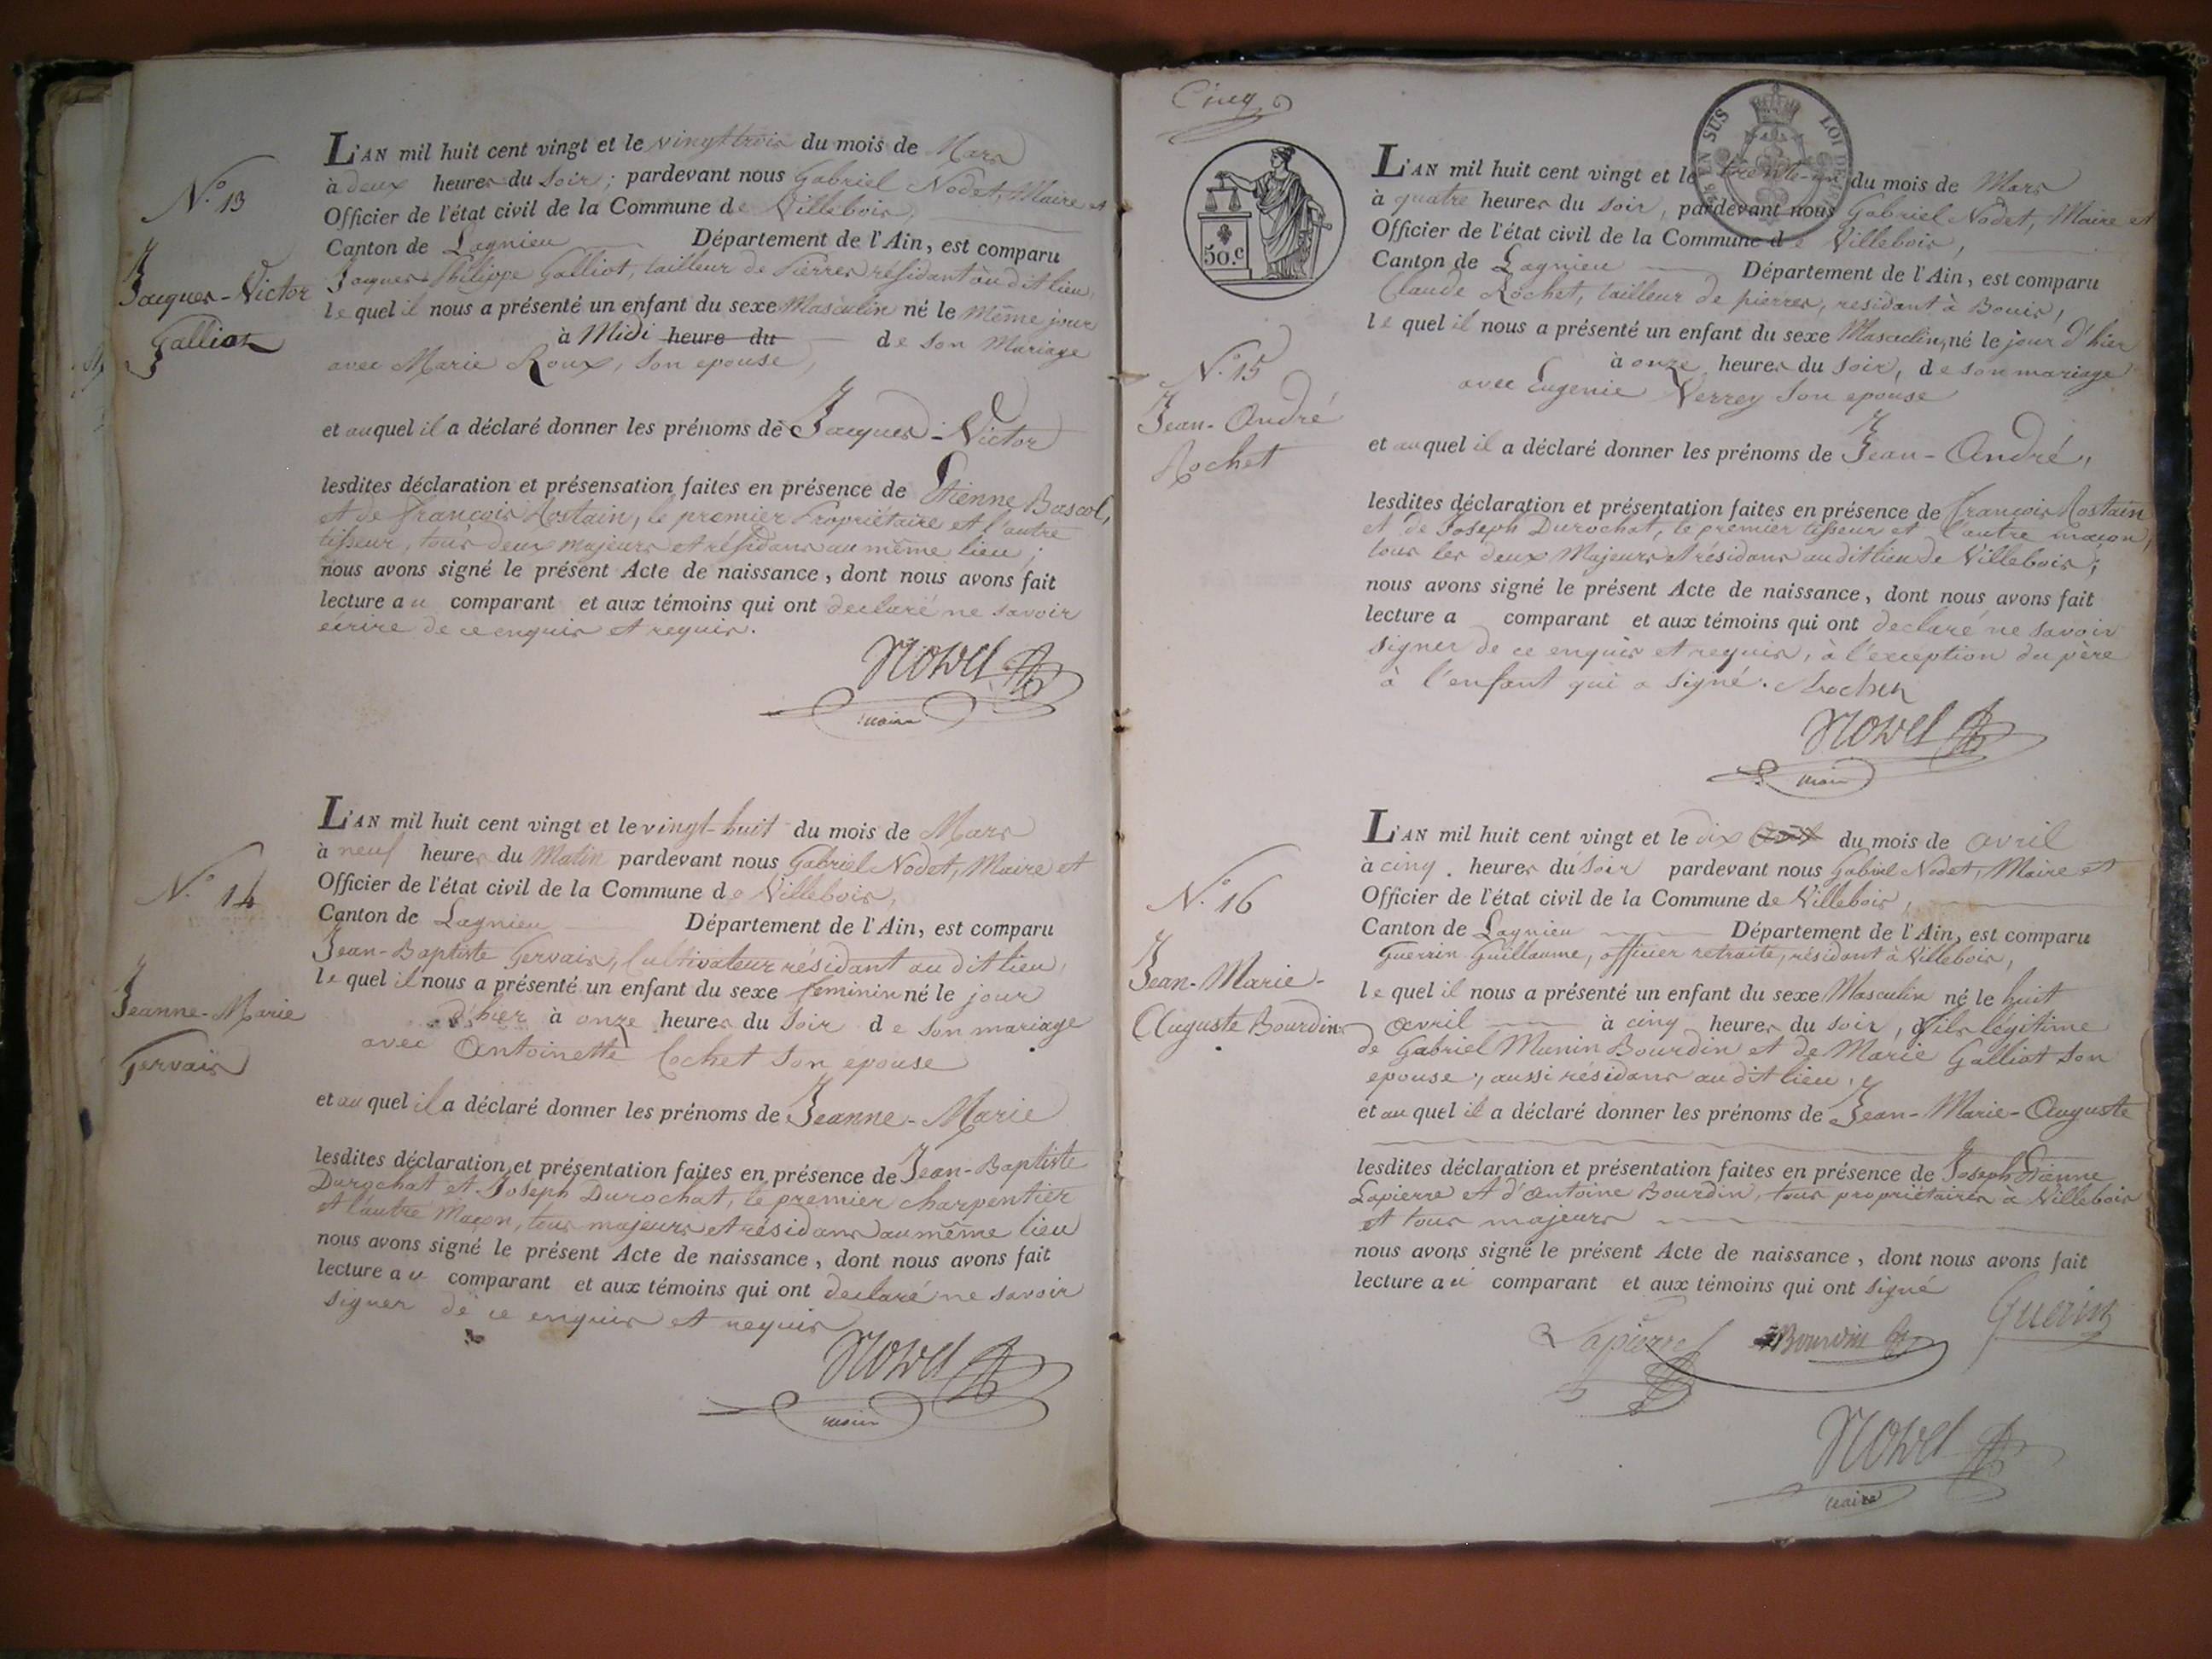 N.° 13
Jacques-Victor
Galliot
L'AN mil huit cent vingt et le vingt trois du mois de Mars
à deux heures du Soir; pardevant nous Gabriel Nodet, Maire et
Officier de l'état civil de la Commune de Villebois,
Canton de Lagnieu Département de l'Ain, est comparu
Jaques Philippe Galliot, tailleur de Pierres résidant au dit lieu,
le quel il nous a présenté un enfant du sexe Masculin né le même jour
à Midi heure du de son Mariage
avec Marie Roux, son epouse,
et auquel il a déclaré donner les prénoms de Jacques-Victor
lesdites déclaration et présensation faites en présence de Etienne Bascol,
et de françois Rostain, le premier Propriétaire et l'autre
tisseur, tous deux majeurs et résidans au même lieu;
nous avons signé le présent Acte de naissance, dont nous avons fait
lecture au comparant et aux témoins qui ont declaré ne savoir
écrire de ce enquis et requis.
Nodet
maire
N.° 14
Jeanne-Marie
Gervais
L'AN mil huit cent vingt et le vingt-huit du mois de Mars
à neuf heures du Matin pardevant nous Gabriel Nodet, Maire et
Officier de l'état civil de la Commune de Villebois,
Canton de Lagnieu Département de l'Ain, est comparu
Jean-Baptiste Gervais, Cultivateur résidant au dit lieu,
le quel il nous a présenté un enfant du sexe feminin né le jour
d'hier à onze heures du Soir de son mariage
avec Antoinette Cochet son epouse
et au quel il a déclaré donner les prénoms de Jeanne-Marie
lesdites déclaration et présentation faites en présence de Jean-Baptiste
Durochat et Joseph Durochat, le premier charpentier
et l'autre Maçon, tous majeurs et résidans au même lieu
nous avons signé le présent Acte de naissance, dont nous avons fait
lecture au comparant et aux témoins qui ont declaré ne savoir
signer de ce enquis et requis
Nodet
maire
Cinq
50.c
EN SUS
LOI DE
N.° 15
Jean-André
Rochet
L'AN mil huit cent vingt et le trente-un du mois de Mars
à quatre heures du soir, pardevant nous Gabriel Nodet, Maire et
Officier de l'état civil de la Commune de Villebois,
Canton de Lagnieu Département de l'Ain, est comparu
Claude Rochet, tailleur de pierres, residant à Bouis,
le quel il nous a présenté un enfant du sexe Masculin, né le jour d'hier
à onze heures du soir, de son mariage
avec Eugenie Verrey son epouse
et au quel il a déclaré donner les prénoms de Jean-André,
lesdites déclaration et présentation faites en présence de françois Rostain
et de Joseph Durochat, le premier tisseur et l'autre maçon,
tous les deux Majeurs et résidans au dit lieu de Villebois;
nous avons signé le présent Acte de naissance, dont nous avons fait
lecture a comparant et aux témoins qui ont declaré ne savoir
signer de ce enquis et requis, à l'exception du père
à l'enfant qui a signé. Rochet
Nodet
maire
N.° 16
Jean-Marie-
Auguste Bourdin
L'AN mil huit cent vingt et le dix du mois de avril
à cinq heures du Soir pardevant nous Gabriel Nodet, Maire et
Officier de l'état civil de la Commune de Villebois,
Canton de Lagnieu Département de l'Ain, est comparu
Guerrin Guillaume, officier retraité, résidant à Villebois,
le quel il nous a présenté un enfant du sexe Masculin né le huit
avril à cinq heures du soir, fils légitime
de Gabriel Munin Bourdin et de Marie Galliot son
epouse, aussi résidans au dit lieu,
et au quel il a déclaré donner les prénoms de Jean-Marie-Auguste
lesdites déclaration et présentation faites en présence de Joseph Etienne
Lapierre et d'Antoine Bourdin, tous propriétaires à Villebois
et tous majeurs
nous avons signé le présent Acte de naissance, dont nous avons fait
lecture au comparant et aux témoins qui ont signé
Lapierre Bourdin Guerin
Nodet
maire